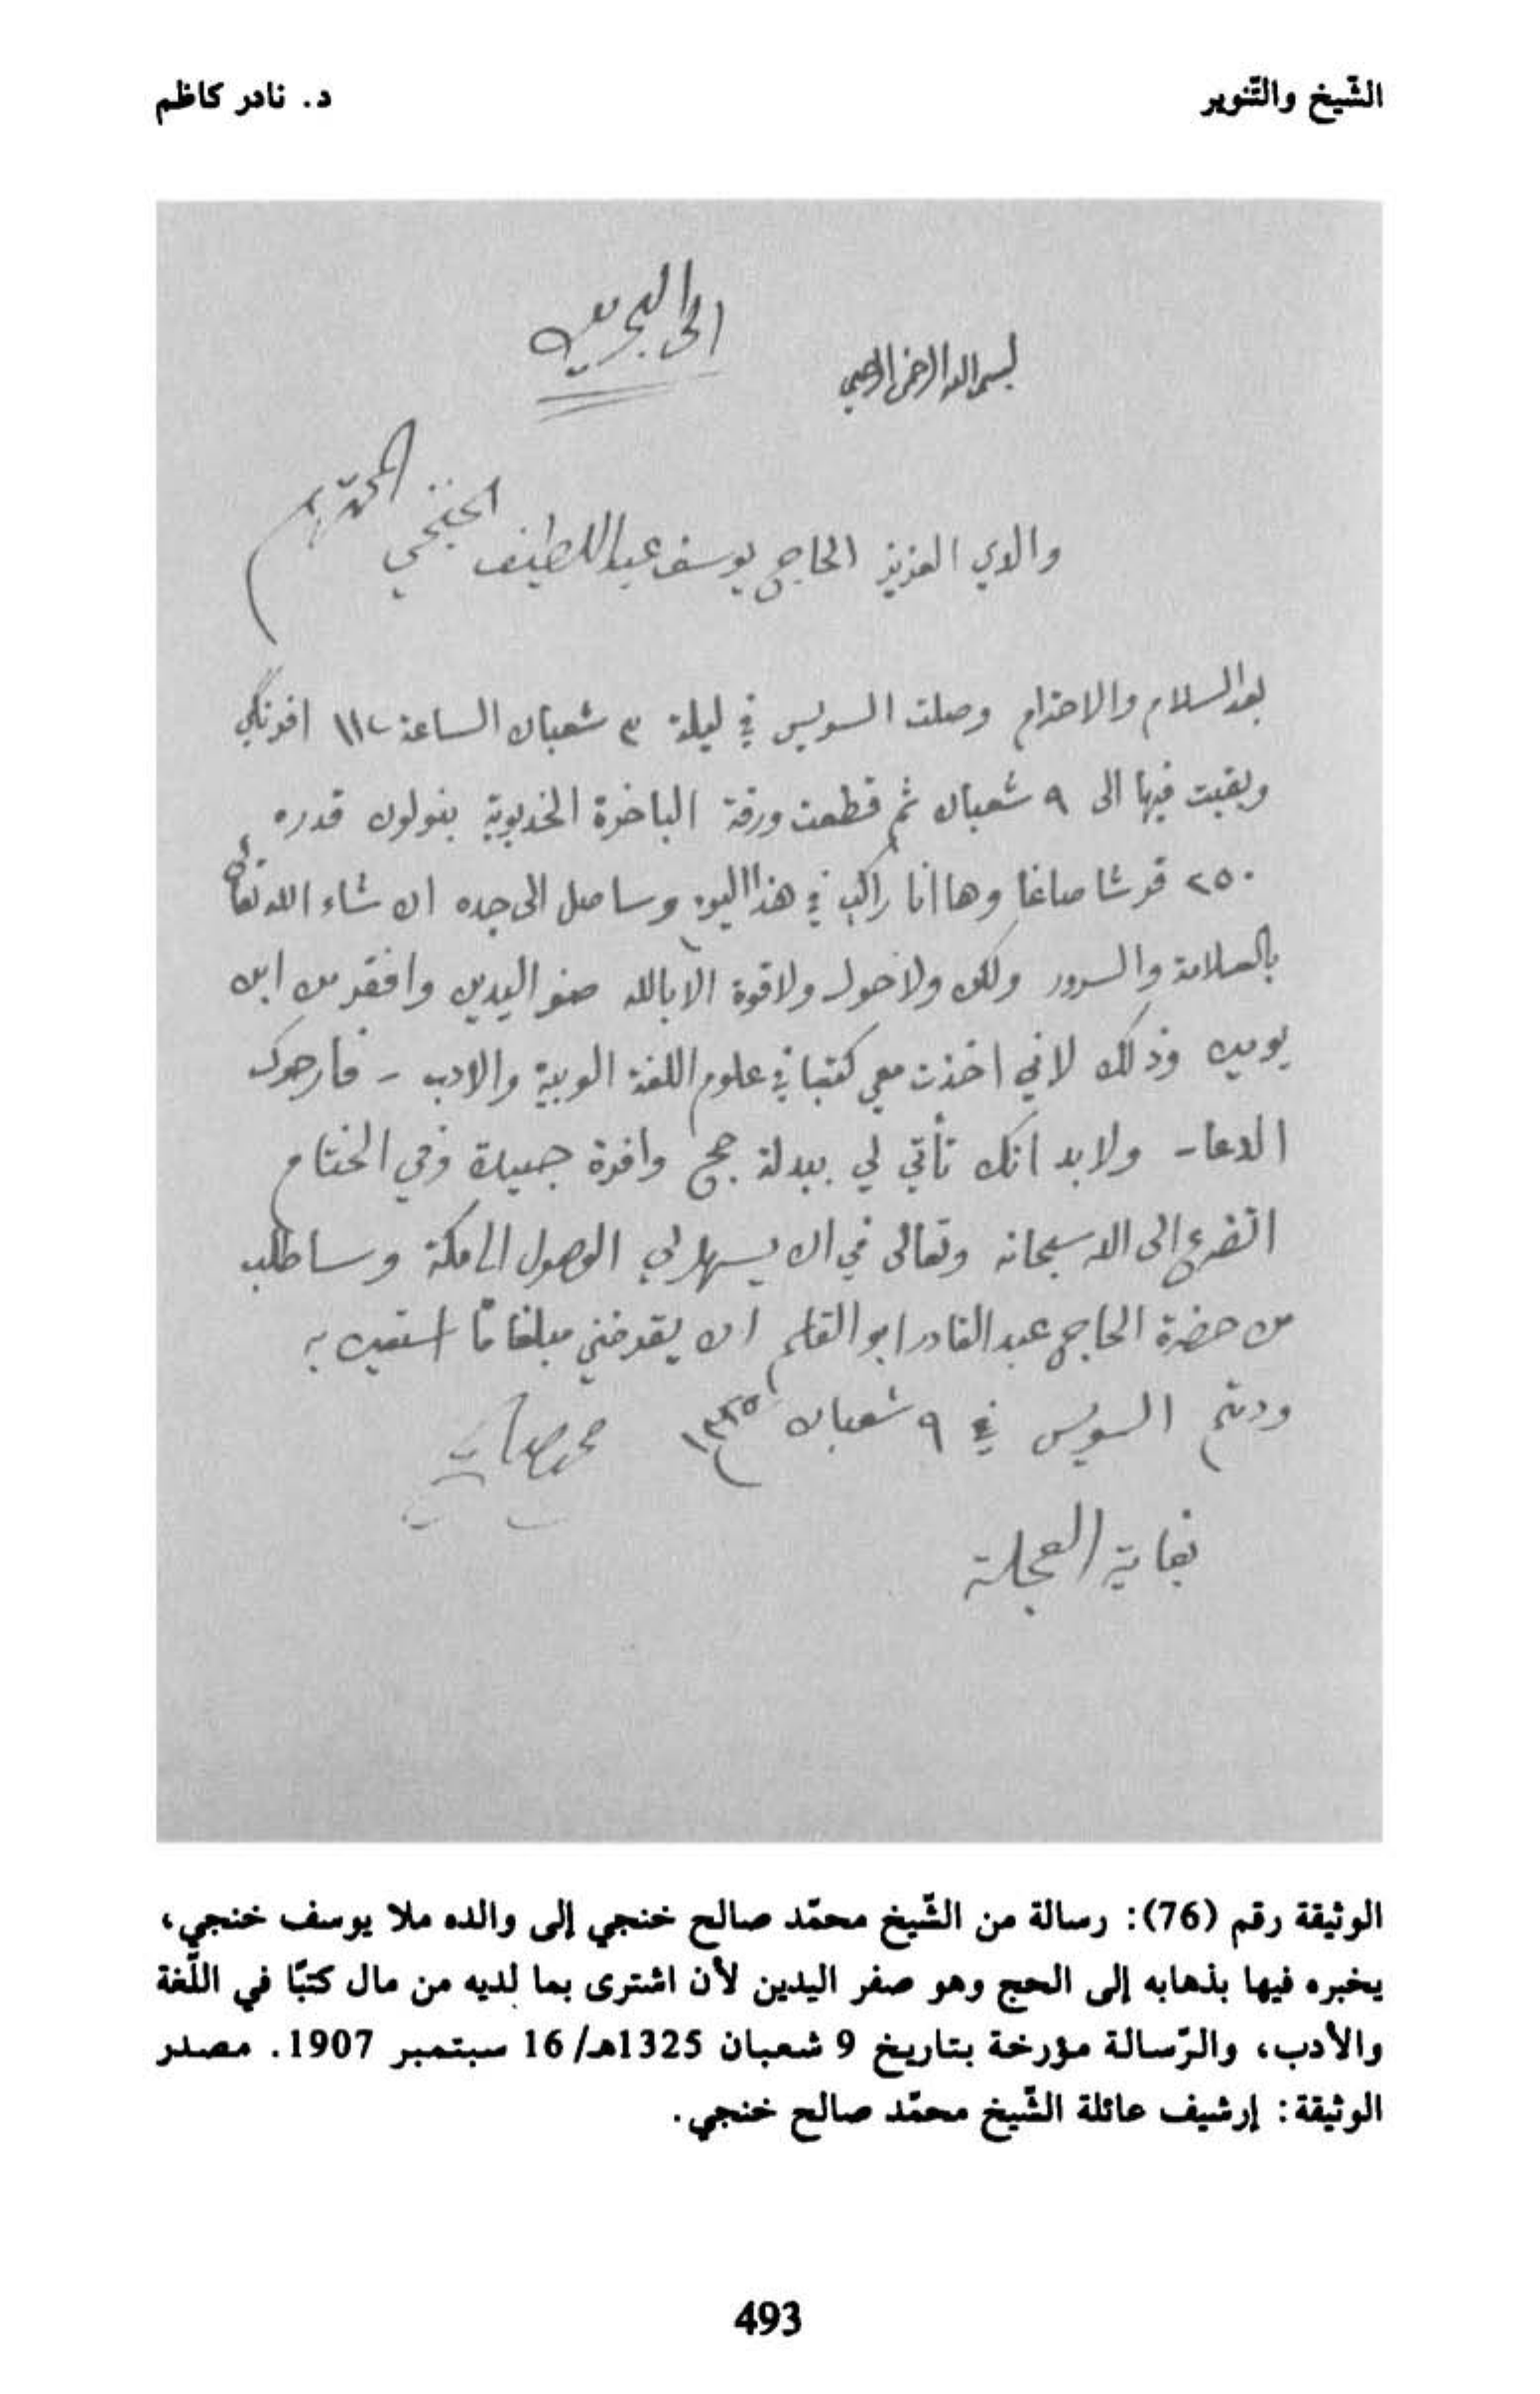 الشّيخ والتّنوير
د. نادر كاظم
الى البحرين
بسم الله الرحمن الرحيم
والدي العزيز الحاج يوسف عبد اللطيف الخنجي المحترم
بعد السلام والاحترام وصلت السويس في ليلة ٣ شعبان الساعة افرنكي
وبقيت فيها الى ٩ شعبان ثم قطعت ورقة الباخرة الخديوية بنولون قدره
٢٥٠ قرشا صاغا وها انا راكب في هذا اليوم وساصل الى جده ان شاء الله تعالى
بالسلامة والسرور ولكن ولا حول ولا قوة الا بالله صفر اليدين وافقر من ابن
يومين وذلك لاني اخذت معي كتبا في علوم اللغة العربية والادب - فارجوك
الدعا - ولا بد انك تأتي لي ببدلة حج وافرة جميلة وفي الختام
اتضرع الى الله سبحانه وتعالى في ان يسهل لي الوصول الى مكة وساطلب
من حضرة الحاج عبد القادر ابو القلم ان يقرضني مبلغا ما استعين به
ودمتم السويس في ٩ شعبان ١٣٢٥ محمد صالح
بغاية العجلة
الوثيقة رقم (76): رسالة من الشّيخ محمّد صالح خنجي إلى والده ملا يوسف خنجي،
يخبره فيها بذهابه إلى الحج وهو صفر اليدين لأن اشترى بما لديه من مال كتبًا في اللّغة
والأدب، والرّسالة مؤرخة بتاريخ 9 شعبان 1325هـ/ 16 سبتمبر 1907. مصدر
الوثيقة: إرشيف عائلة الشّيخ محمّد صالح خنجي.
493